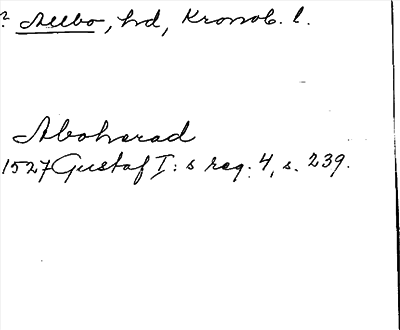 ? Allbo, hd, Kronob. l.
Aboherad
1527 Gustaf I:s reg. 4, s. 239.